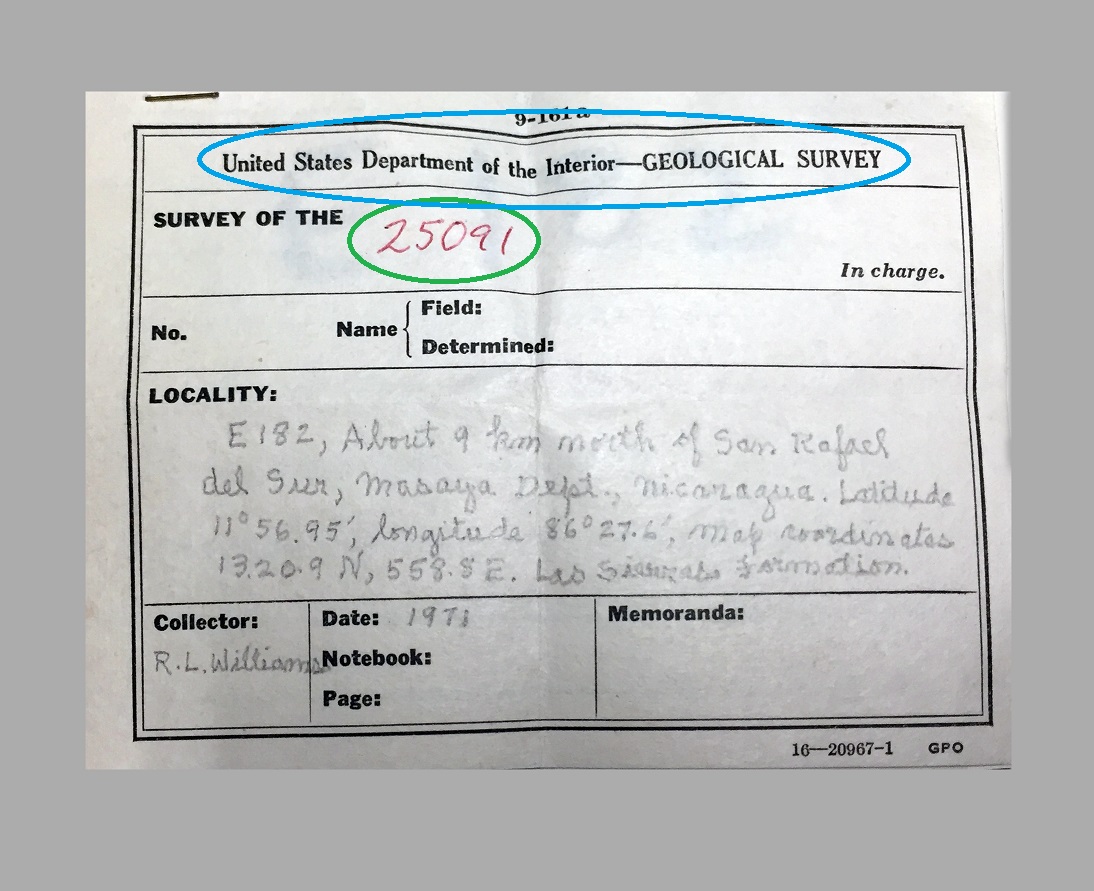 9-161a
United States Department of the Interior—GEOLOGICAL SURVEY
SURVEY OF THE 25091
In charge.
No. Name { Field:
Determined:
LOCALITY:
E182, About 9 km north of San Rafael
del Sur, Masaya Dept., Nicaragua. Latitude
11° 56.95', longitude 86° 27.6', map coordinates
13.20.9 N, 558.8 E. Las Sierras Formation.
Collector: Date: 1971 Memoranda:
R.L. Williams Notebook:
Page:
16—20967-1 GPO